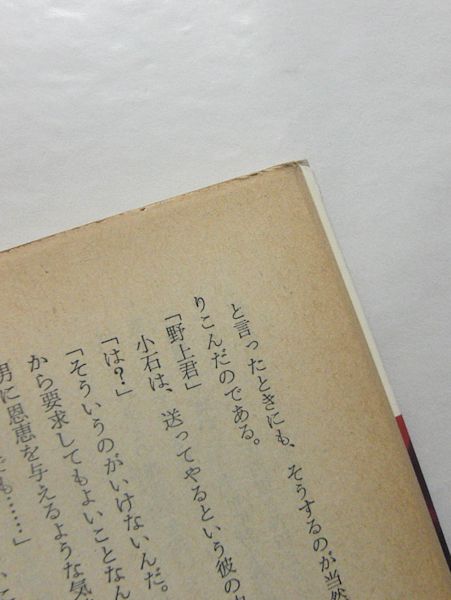 と言ったときにも、そうするのが当然
りこんだのである。
「野上君」
小石は、送ってやるという彼の
「は?」
「そういうのがいけないんだ。
から要求してもよいことなん
男に恩恵を与えるような気
でも……」